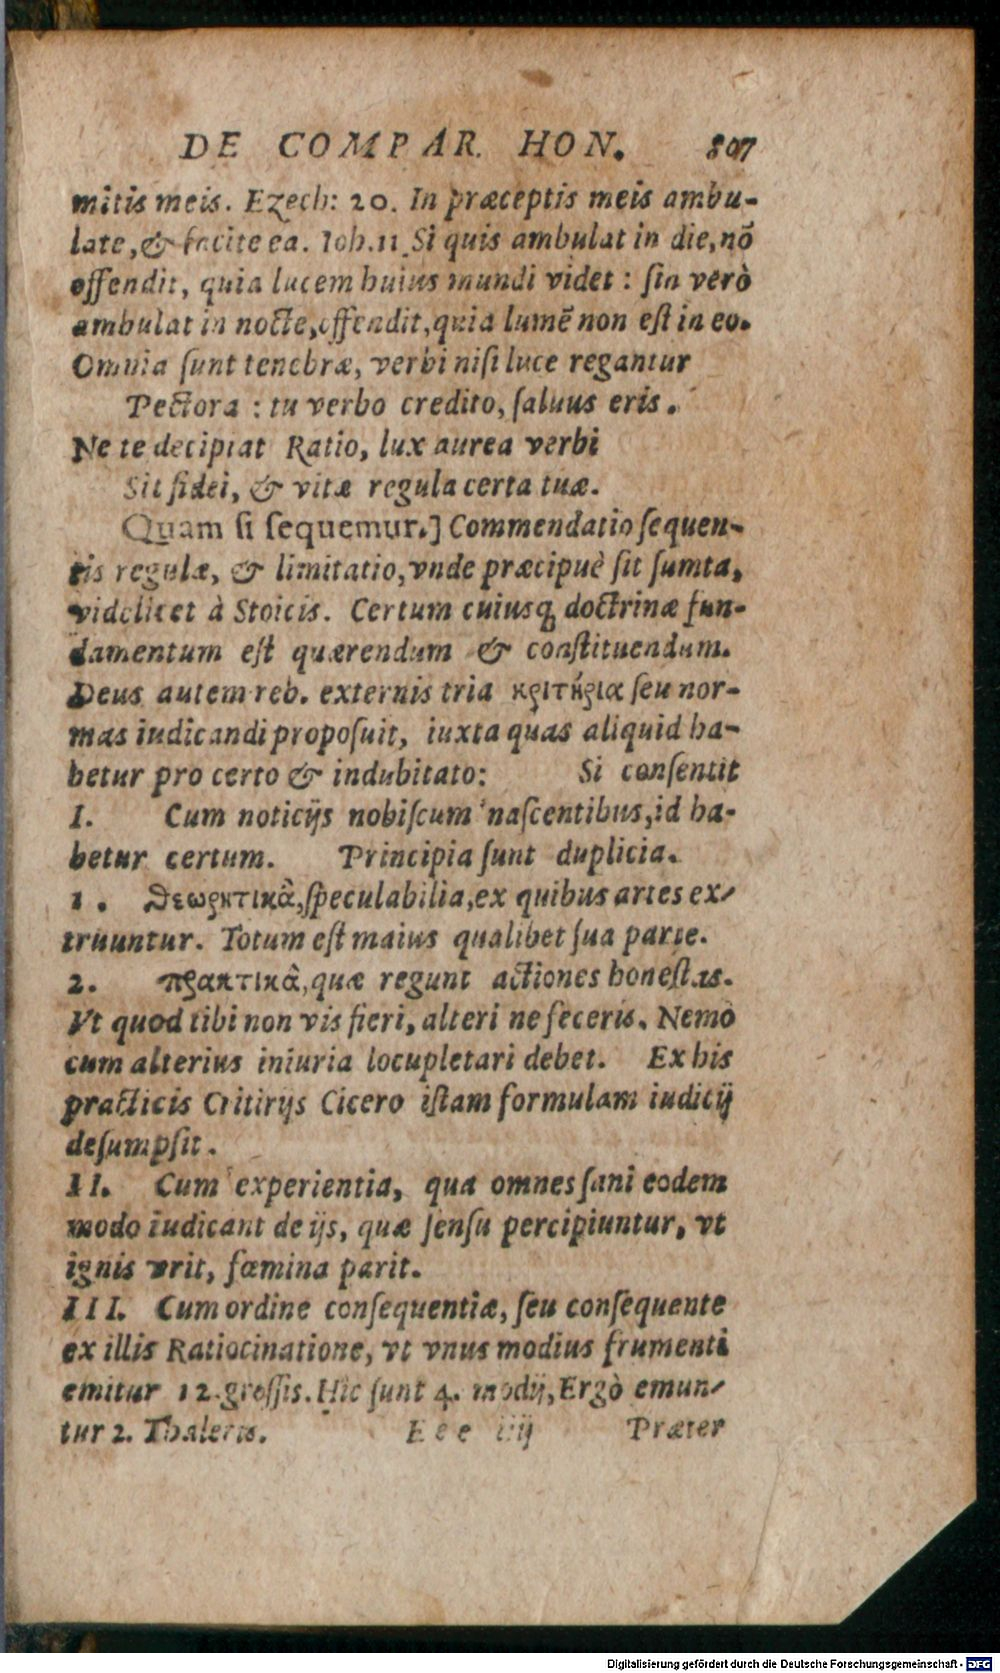 DE COMPAR. HON. 807
mitis meis. Ezech: 20. In præceptis meis ambu-
late, & facite ea. Ioh.11 Si quis ambulat in die, nō
offendit, quia lucem huius mundi videt : sin verò
ambulat in nocte, offendit, quia lumē non est in eo.
Omnia sunt tenebræ, verbi nisi luce regantur
Pectora : tu verbo credito, saluus eris.
Ne te decipiat Ratio, lux aurea verbi
Sit fidei, & vitæ regula certa tuæ.
Quam si sequemur.] Commendatio sequen-
tis regulæ, & limitatio, vnde præcipuè sit sumta,
videlicet à Stoicis. Certum cuiusq; doctrinæ fun-
damentum est quærendum & constituendum.
Deus autem reb. externis tria κριτήρια seu nor-
mas iudicandi proposuit, iuxta quas aliquid ha-
betur pro certo & indubitato: Si consentit
I. Cum noticijs nobiscum nascentibus, id ha-
betur certum. Principia sunt duplicia.
1. Θεωρητικὰ, speculabilia, ex quibus artes ex-
truuntur. Totum est maius qualibet sua parte.
2. πρακτικὰ, quæ regunt actiones honestas.
Vt quod tibi non vis fieri, alteri ne feceris. Nemo
cum alterius iniuria locupletari debet. Ex his
practicis Critirijs Cicero istam formulam iudicij
desumpsit.
II. Cum experientia, qua omnes sani eodem
modo iudicant de ijs, quæ sensu percipiuntur, vt
ignis vrit, fœmina parit.
III. Cum ordine consequentiæ, seu consequente
ex illis Ratiocinatione, vt vnus modius frumenti
emitur 12. grossis. Hîc sunt 4. modij, Ergò emun-
tur 2. Thaleris. Eee iiij Præter
Digitalisierung gefördert durch die Deutsche Forschungsgemeinschaft - DFG